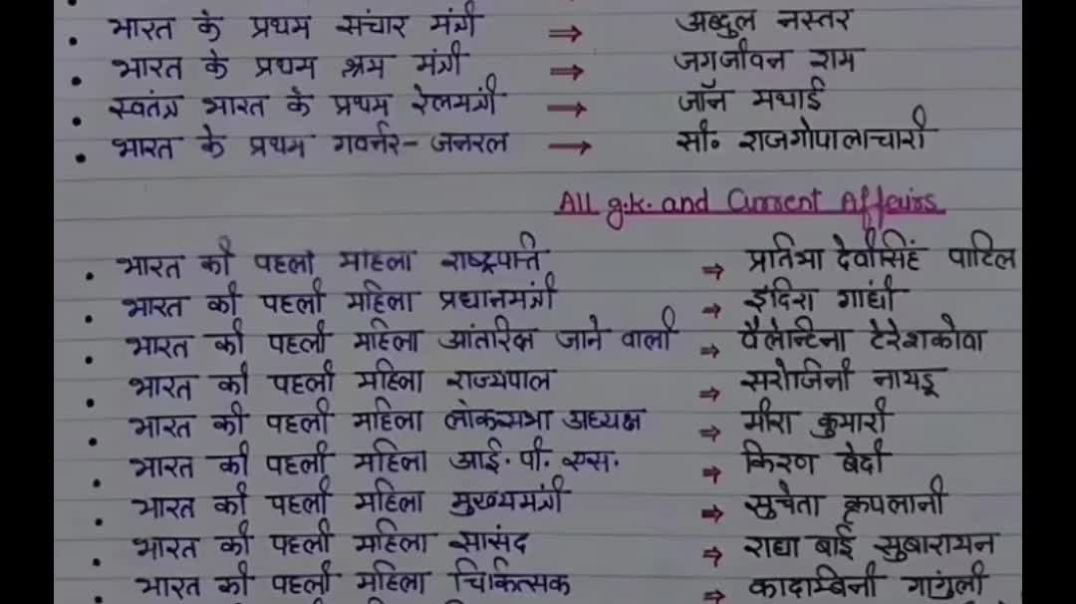 • भारत के प्रथम संचार मंत्री ⇒ अब्दुल नस्तर
• भारत के प्रथम श्रम मंत्री ⇒ जगजीवन राम
• स्वतंत्र भारत के प्रथम रेलमंत्री → जॉन मथाई
• भारत के प्रथम गवर्नर-जनरल → सी॰ राजगोपालाचारी
All g.k. and Current Affairs
• भारत की पहली महिला राष्ट्रपति ⇒ प्रतिभा देवीसिंह पाटिल
• भारत की पहली महिला प्रधानमंत्री ⇒ इंदिरा गांधी
• भारत की पहली महिला आंतरिक्ष जाने वाली ⇒ वैलेन्टिना टेरेशकोवा
• भारत की पहली महिला राज्यपाल ⇒ सरोजिनी नायडू
• भारत की पहली महिला लोकसभा अध्यक्ष ⇒ मीरा कुमारी
• भारत की पहली महिला आई.पी.एस. ⇒ किरण बेदी
• भारत की पहली महिला मुख्यमंत्री ⇒ सुचेता कृपलानी
• भारत की पहली महिला सासंद ⇒ राधा बाई सुबारायन
• भारत की पहली महिला चिकित्सक ⇒ कादाम्बिनी गांगुली